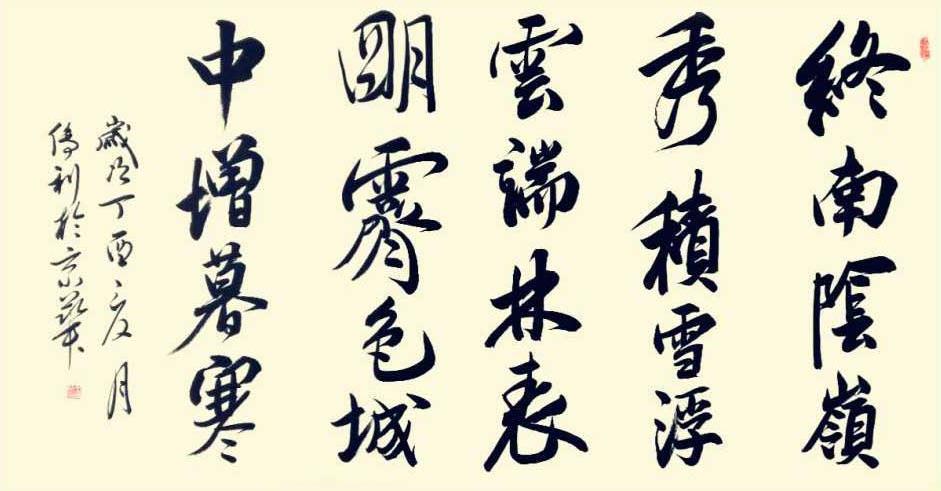 終南陰嶺
秀積雪浮
雲端林表
明霽色城
中增暮寒
歲次丁酉夏月
利於京華